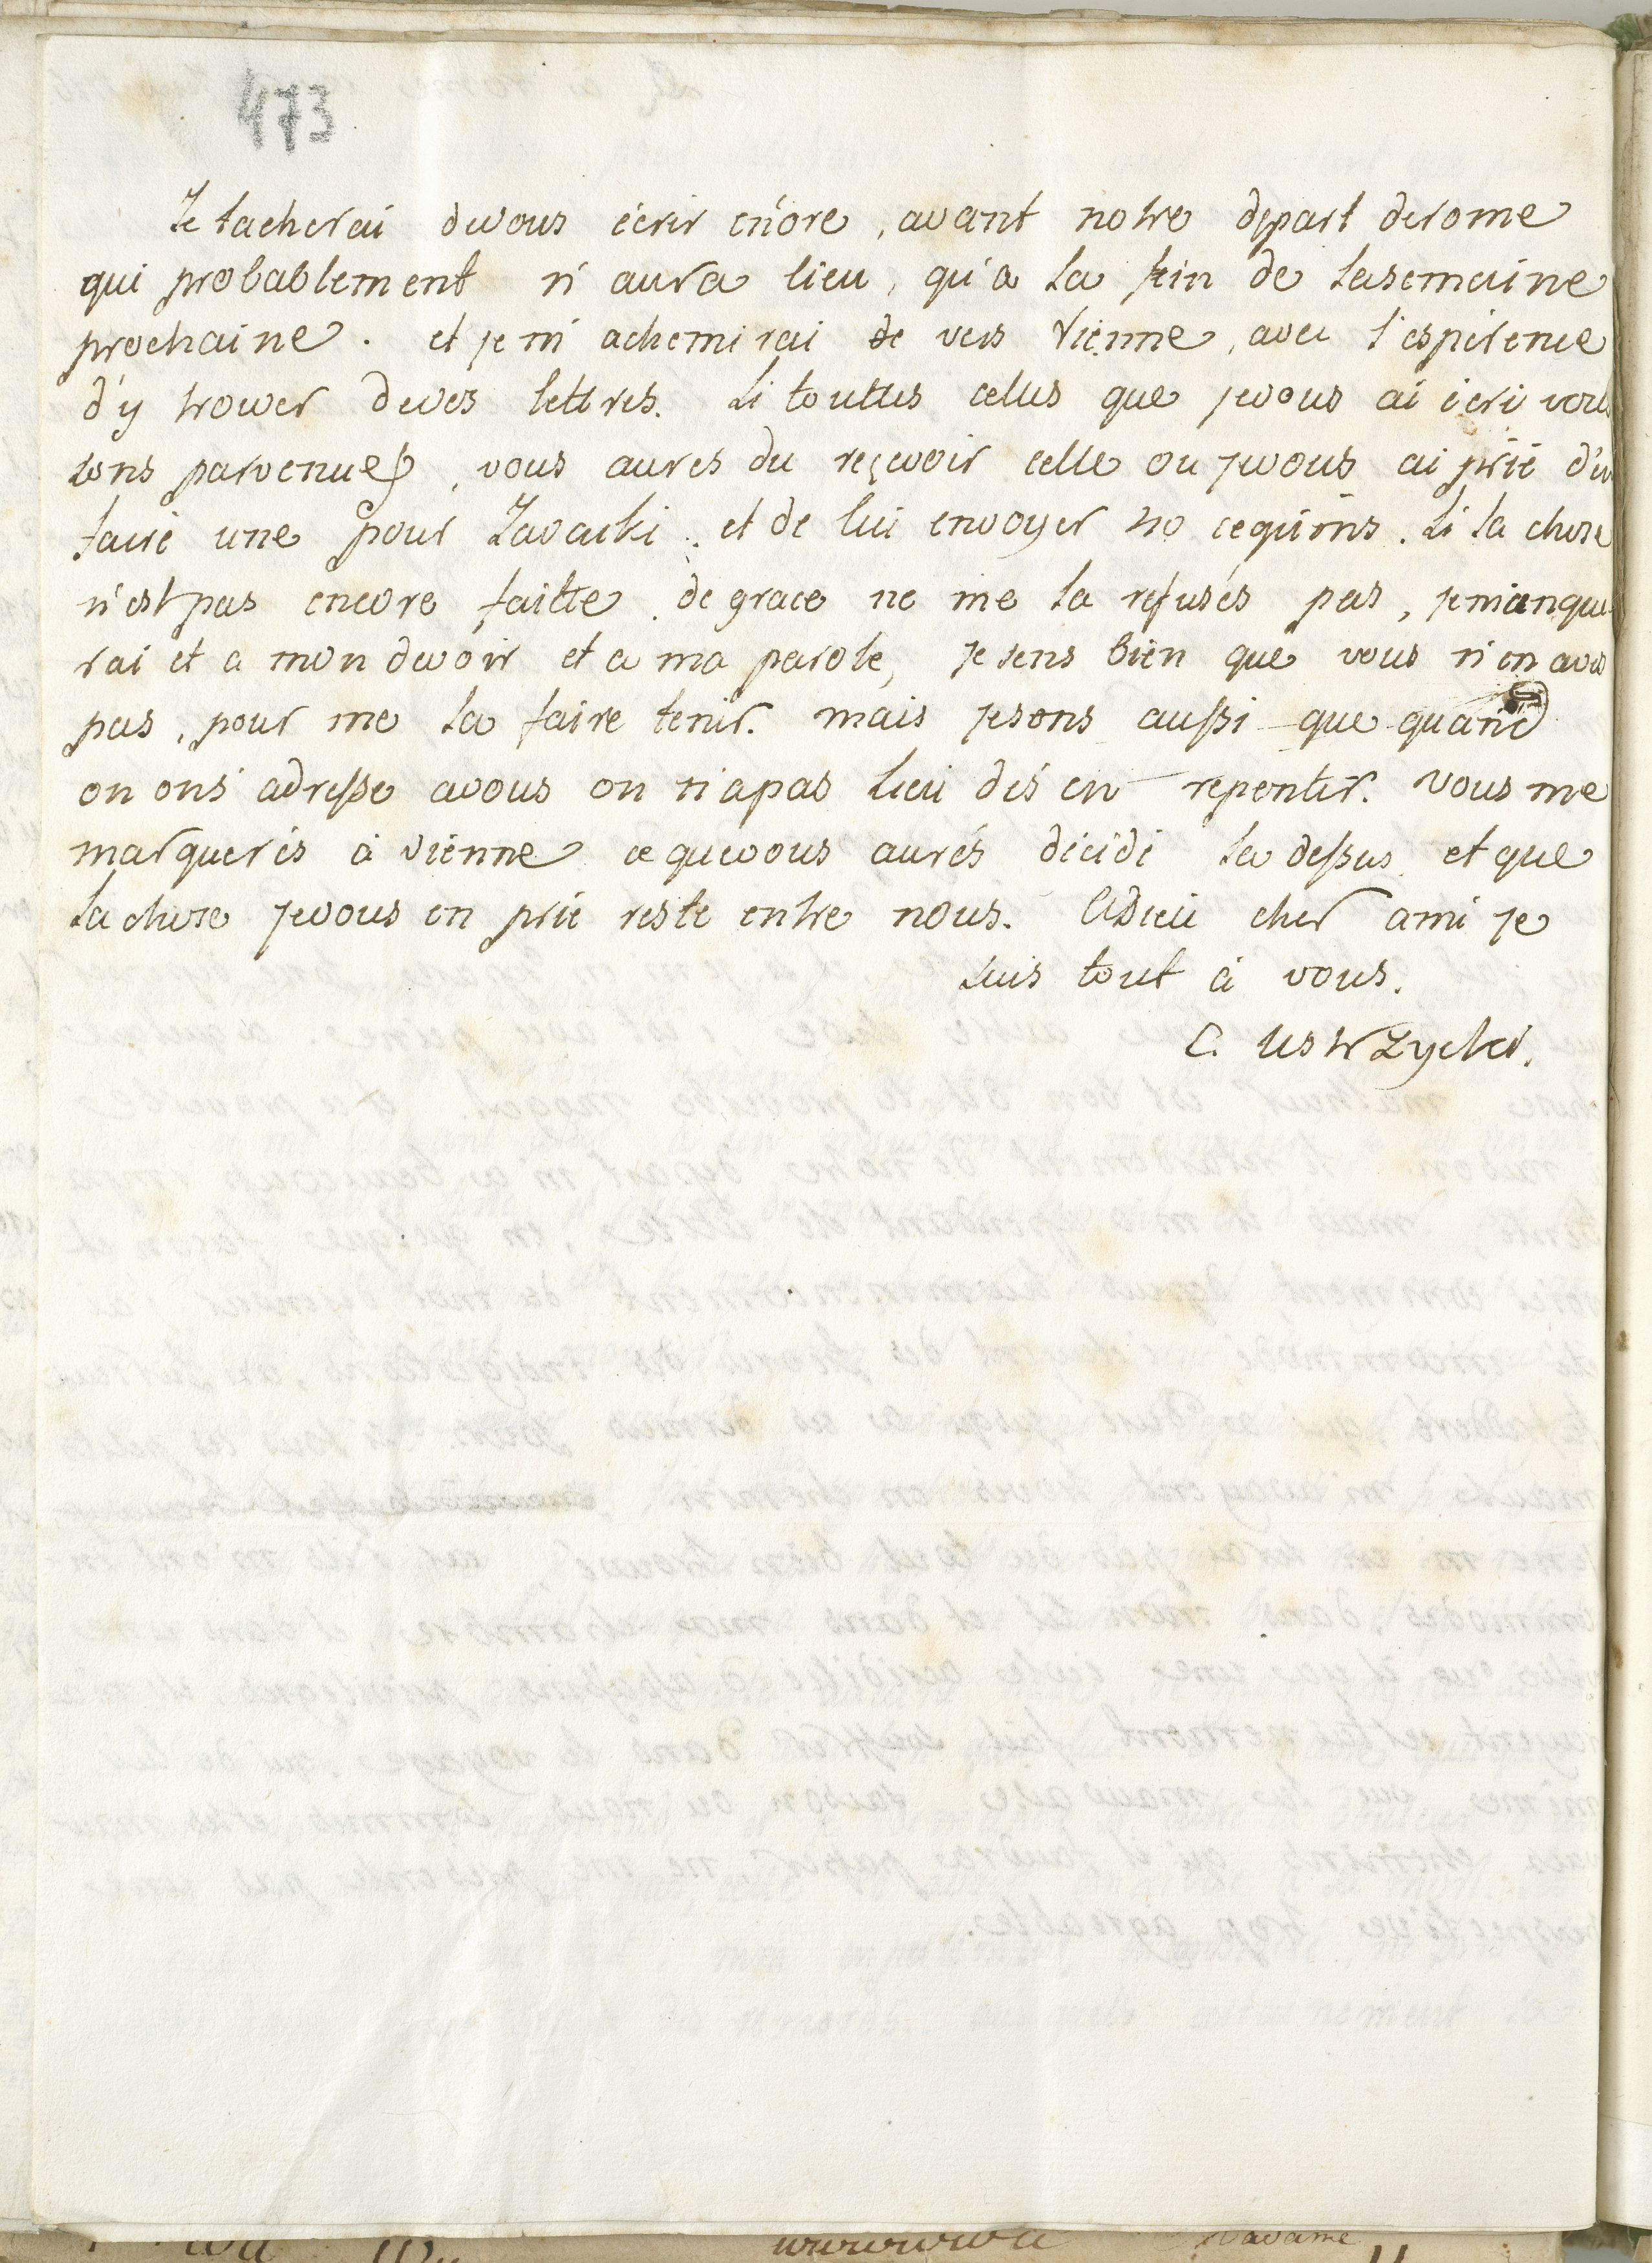 473
Je tacherai devous écrir encore, avant notre depart derome
qui probablement n'aura lieu, qu'a la fin de lasemaine
prochaine. et je m'achemirai de vers Vienne, avec l'esperence
d'y trower devos lettres. Si touttes celles que jevous ai écri vous
sons parvenues, vous aures du reçevoir celle ou jevous ai prié d'en
faire une pour Zavacki. et de lui envoyer sequins. Si la chose
n'est pas encore faitte. de grace ne me la refusés pas, jemanque
rai et a mon devoir et a ma parole, je sens bien que vous n'en aves
pas, pour me la faire tenir. mais jesens aussi que quand
on ons'adresse avous on n'apas lieu dés'en repentir. Vous me
marquerés à Vienne cequevous aurés décidé la dessus et que
la chose jevous en prie reste entre nous. Adieu cher ami je
suis tout à vous.
C. Ustrzycka.